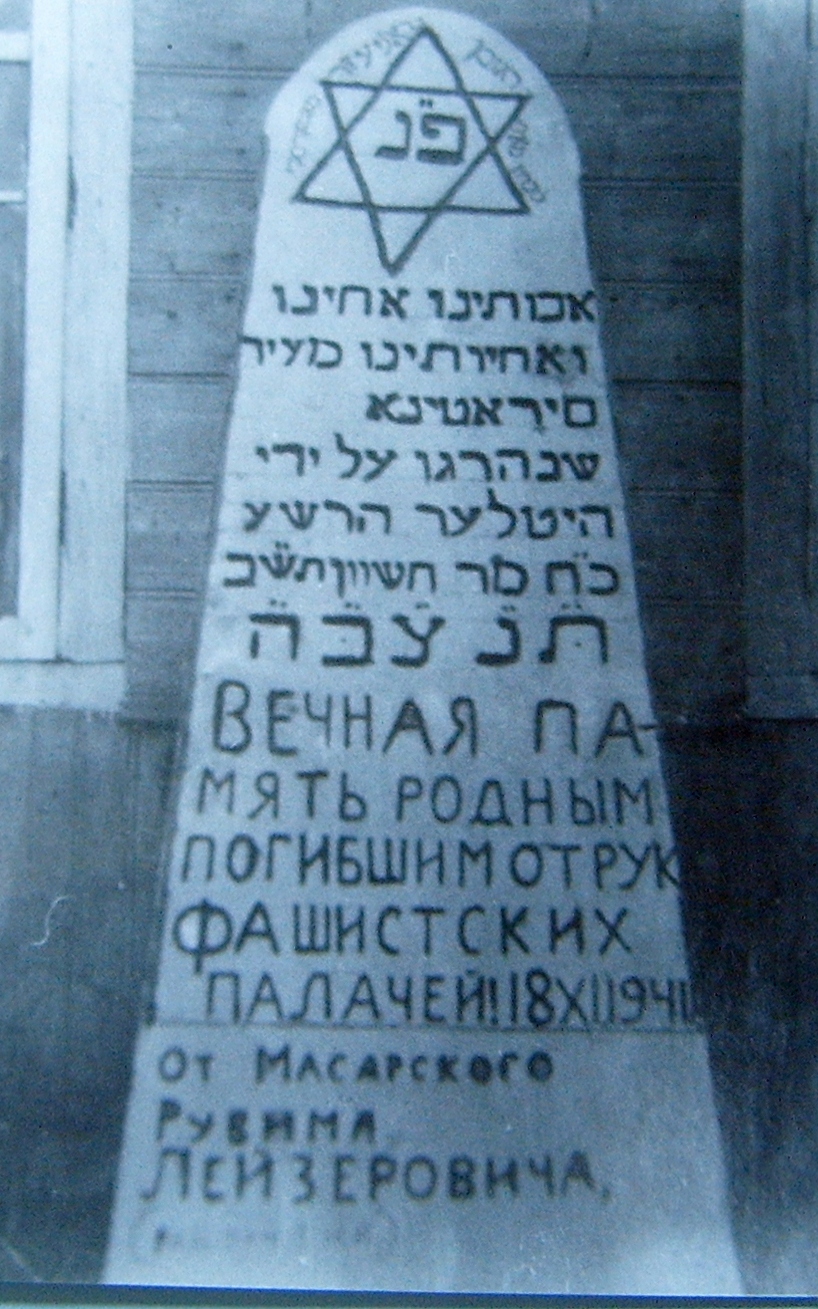 פ״נ
אבותינו אחינו
ואחיותינו מעיר
סיראטינא
שנהרגו על ידי
היטלער הרשע
כ״ח מר חשוון תש״ב
ת̈ נ̈ צ̈ ב̈ ה̈
ВЕЧНАЯ ПА-
МЯТЬ РОДНЫМ
ПОГИБШИМ ОТ РУК
ФАШИСТСКИХ
ПАЛАЧЕЙ! 18 XI 1941
ОТ МАСАРСКОГО
РУВИМА
ЛЕЙЗЕРОВИЧА.